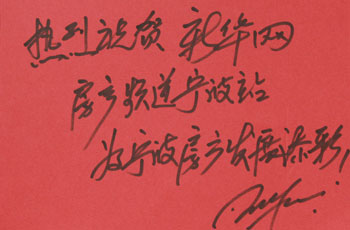 热烈祝贺新华网
房产频道宁波站
为宁波房产发展添彩,